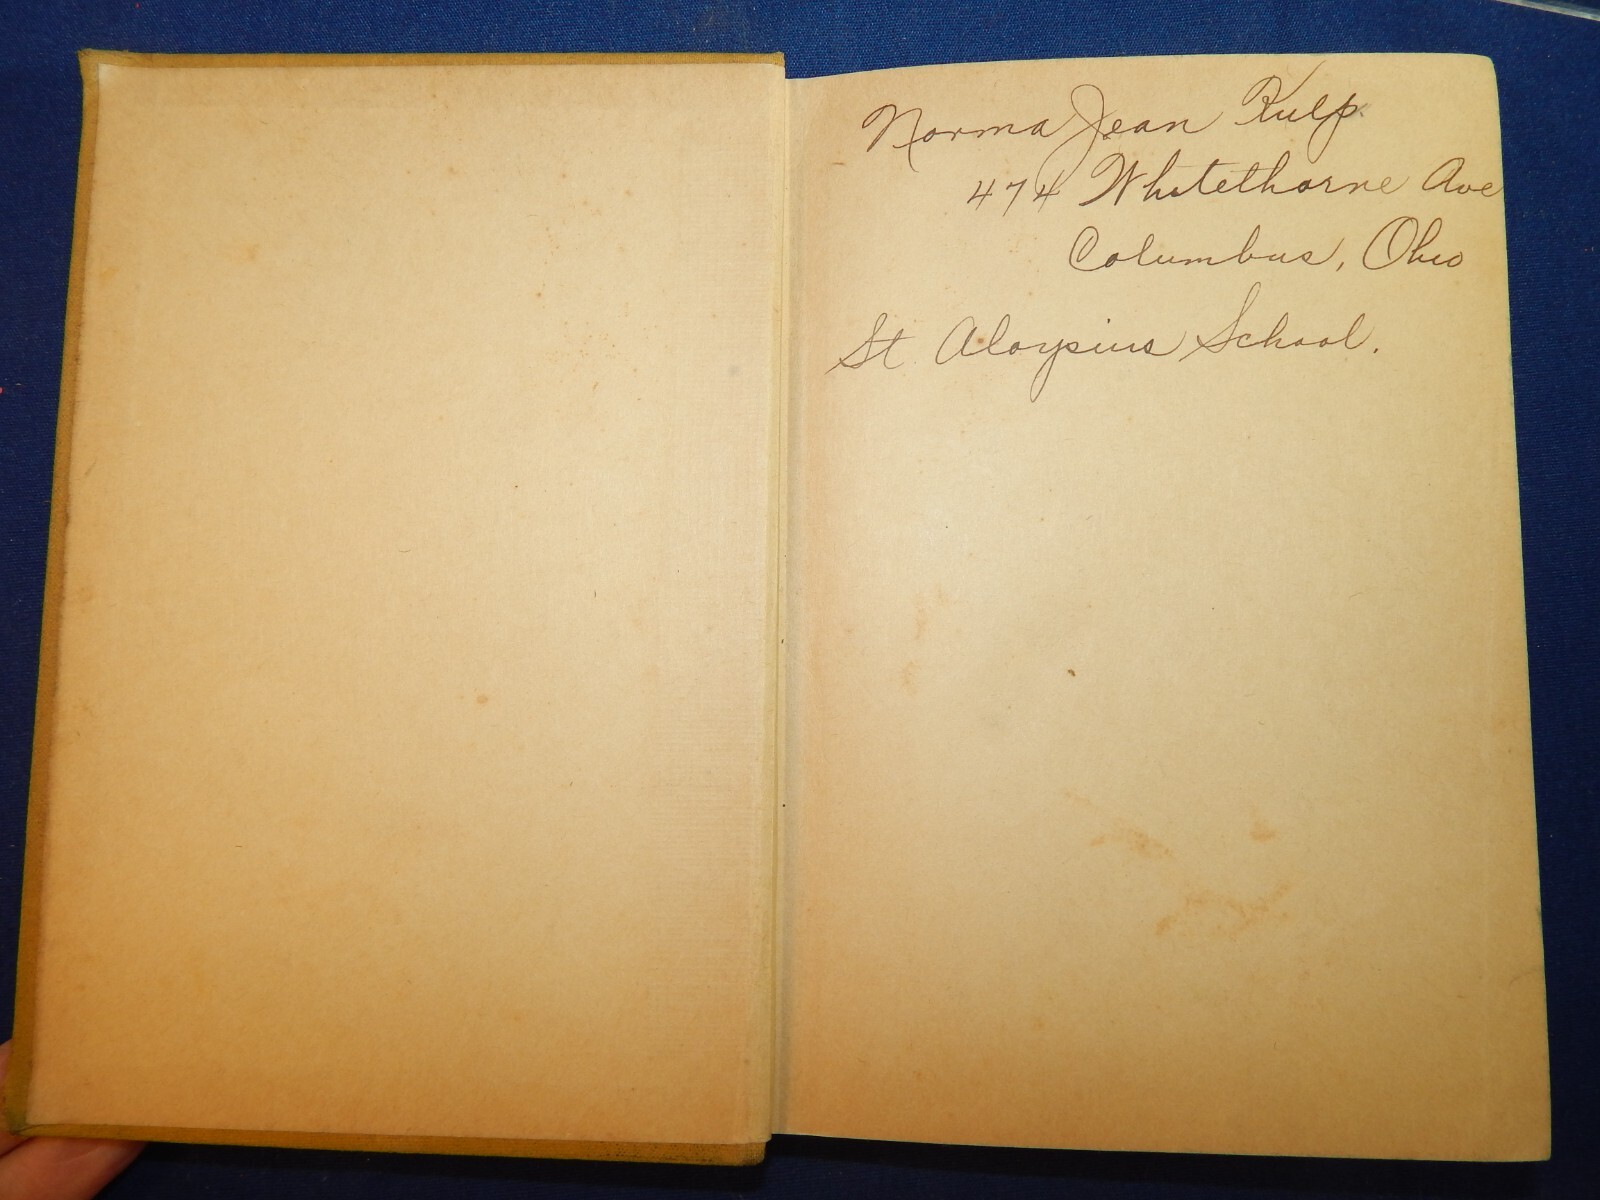 Norma Jean Kulp
474 Whitethorne Ave
Columbus, Ohio
St Aloysius School.